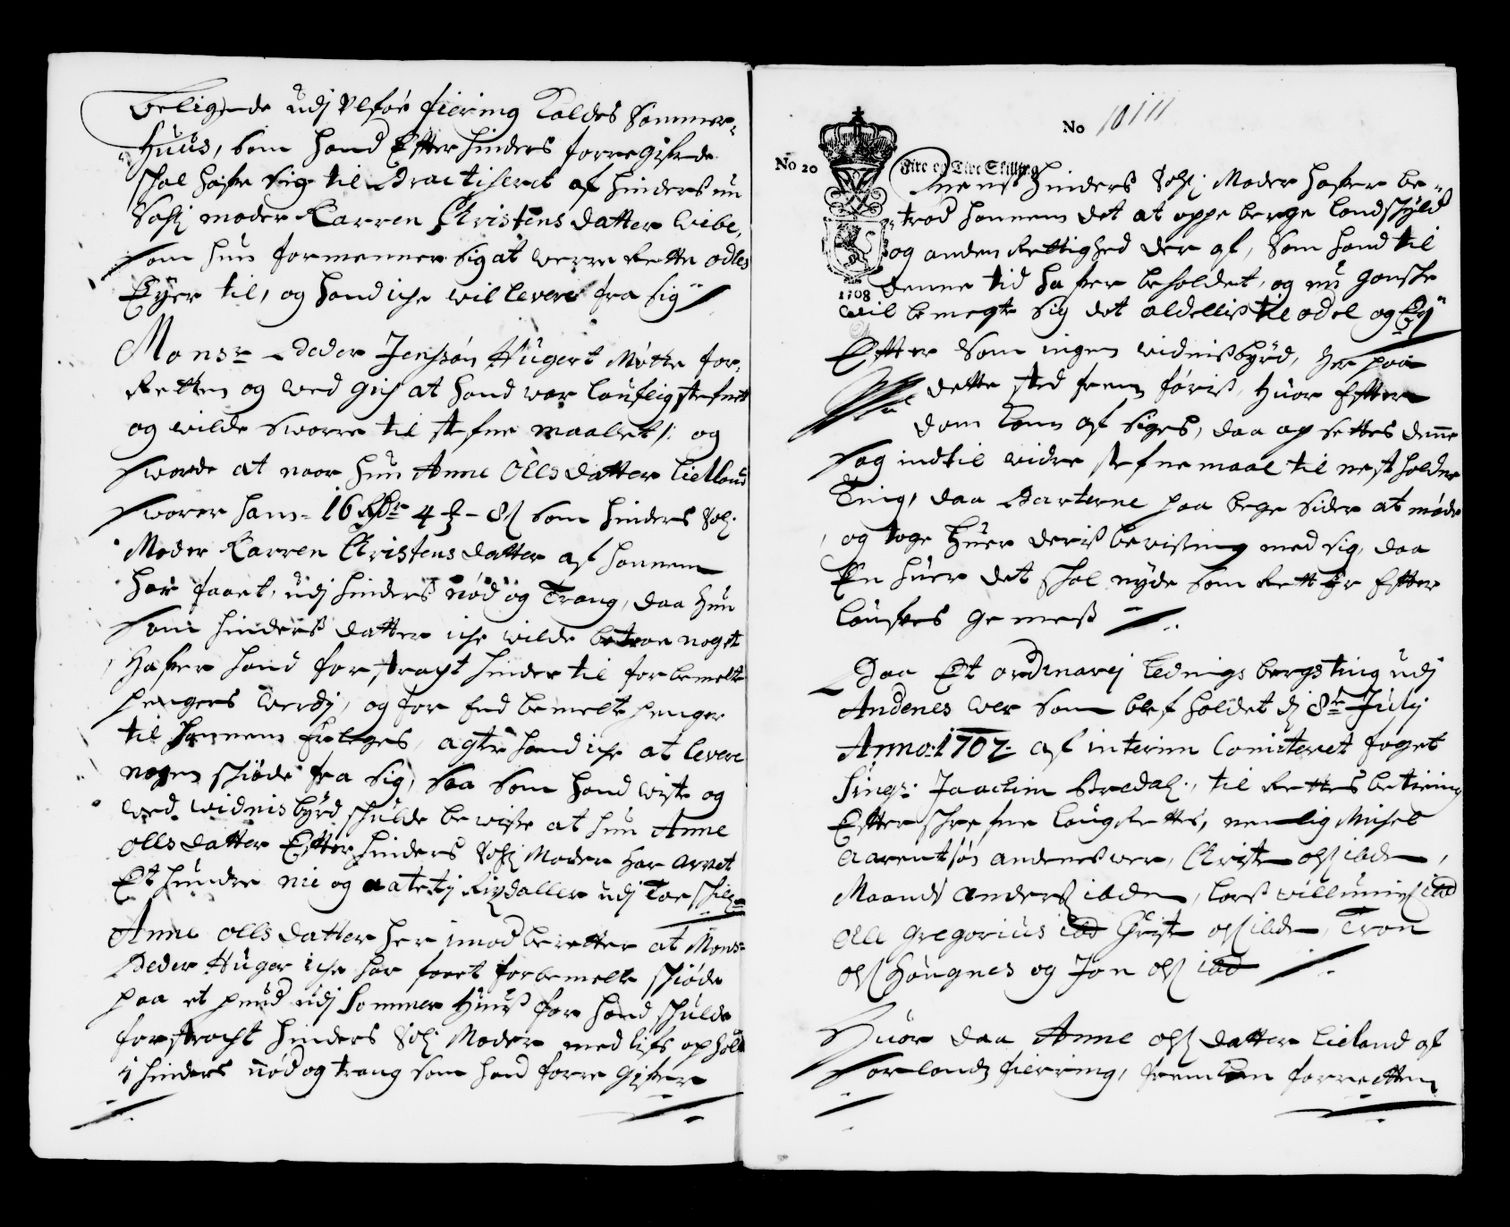 beligende udj Ulføe fiering Kaldes Sommer-
Huus, som hand Effter hinders forregifvende
skal hafve sig til Practiseret af hinders nu
Sahl: moder Karren Christens datter Wibe,
som hun formenner sig at werre Rette odels
Eyer til, og hand iche wil levere fra sig
Mons:r Peder Jenssøn Hugert Møtte for
Retten og wed gich at hand war louflig stefnet
og wilde Sworre til stefne maalet, og
Sworde at naar hun Anne Olls datter Lieland
Sworer ham 16 Rdr 4 - 8 s som hinders Sahl:
Moder Karren Christens datter af hannem
har faaet, udj hinders nød og Trang, daa hun
som hinders datter iche wilde betroe noget
hafver hand forstracht hinder til forbemelte
penges werdj, og før end bemelte penger
til hannem fuldges, agter hand iche at levere
nogen skiøde fra sig, saa som hand wiste og
wed widnisbyrd skulde bewise at hun Anne
olls datter Effter hinders Sahl: Moder har arvet
Et hundre nie og aatetj Rixdaller udj Løeskild
Anne olls datter her imod beretter at Mons:
Peder Huger iche har faaet forbemelte skiøde
paa et pund udj Sommer Huus for hand skulde
forstracht hinders Sahl: Moder med lifs ophold
i hinders nød og trang som hand forre gifver
No 10111
No 20 Fire og Tive Skilling
1708
mens hinders Sahl: Moder hafver be-
trod hannem det at oppe berge landskyld
og anden Rettighed der af, som hand til
denne tid hafver beholdet, og nu ganske
wil bemegte sig det aldelis til odel og Ey
Effter som ingen widnisbyrd, her paa
dette sted frem føris, huor Effter
dom kan af siges, daa op settes denne
sag indtil widre stefnemaal til nest holdne
Ting, daa Parterne paa bege sider at møde
og tage huer deris bevisning med sig, daa
En huer det skal nyde som Rett Er Effter
loufves gemess
Daa Et ordinarij Ledings bergs ting udj
Andenes wer som blef holdet dj 8de Julij
Anno: 1707 af interim Comsteret foget
Singr: Jaachim Bredal, til Rettes betiening
Effter skrefne laugrettes, nemlig Michel
Aarentsøn andenes wer, Christen olss ibdm,
Maands anderss ibdm, Lars willumss ibd
Olle Gregorius ibd Christen olss ibdm, Tron
olss Haugnes og Jon olss ibd
Huor daa Anne olss datter Lieland af
forlands fierring, fremkom for retten